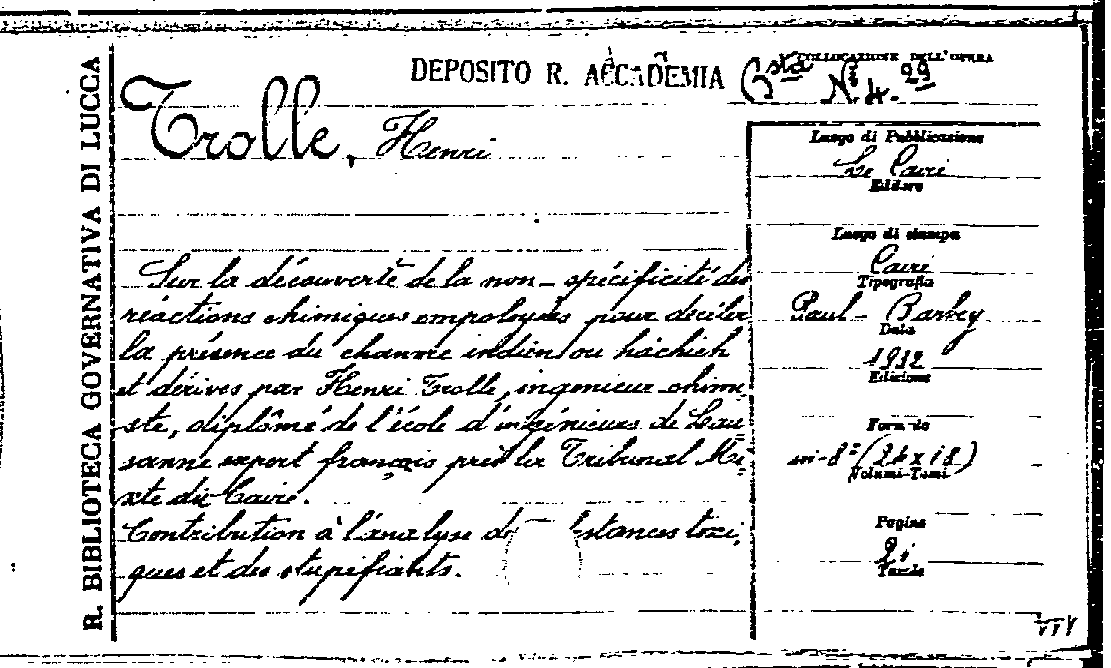 R. BIBLIOTECA GOVERNATIVA DI LUCCA
DEPOSITO R. ACCADEMIA
COLLOCAZIONE DELL'OPERA
Csta N. 4. 29
Trolle, Henri
Luogo di Pubblicazione
Le Caire
Editore
Luogo di stampa
Caire
Tipografia
Paul - Barbey
Data
1912
Edizione
Formato
in-8° (24x18)
Volumi-Tomi
Pagine
Tavole
Sur la découverte de la non-spécificité des
réactions chimiques employées pour déceler
la présence du chanvre indien ou háchich
et dérives par Henri Trolle, ingenieur chimi
ste, diplômé de l'école d'ingénieurs de Lau=
sanne expert français près les Tribunal Mi=
xte du Caire.
Contribution à l'analyse des stances toxi,
ques et des stupefiants.